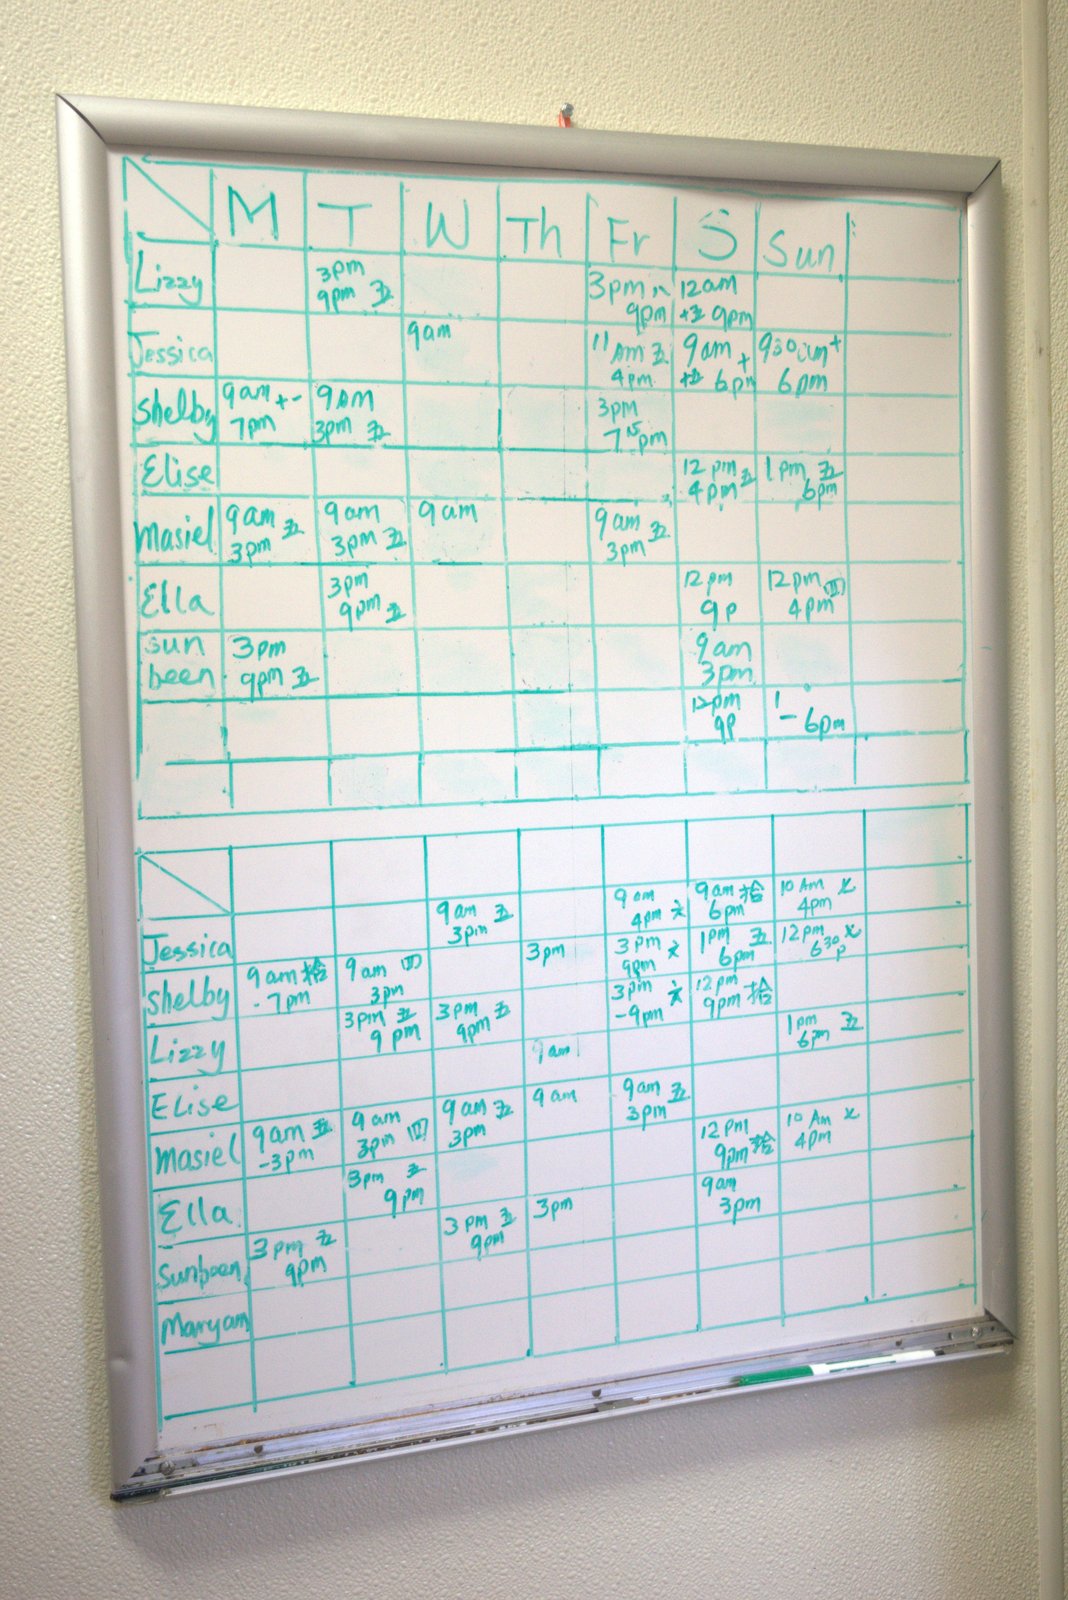 M T W Th Fr S Sun
Lizzy 3pm 3pm 12am
9pm 五 9pm 9pm
Jessica 9am 11 Am 五 9am + 930am +
4pm 6pm 6pm
Shelby 9am +- 9AM 3pm
7pm 3pm 五 7 15 pm
Elise 12 pm 1pm 五
4pm 五 6pm
Masiel 9am 五 9am 9am 9am 五
3pm 3pm 五 3pm
Ella 3pm 12pm 12pm (四)
9pm 五 9p 4pm
sun 3pm 9am
been 9pm 五 3pm
12pm 1
9p - 6pm
Jessica 9am 五 9am 9am 拾 10 Am 六
3pm 4pm 六 6pm 4pm
Shelby 9am 拾 9am (四) 3pm 3pm 六 1pm 五 12pm 六
- 7pm 3pm 9pm 6pm 630 p
Lizzy 3pm 五 3pm 3pm 六 12pm
9pm 9pm 五 -9pm 9pm 拾
Elise 9am 1pm 五
6pm
Masiel 9am 五 9am 9am 五 9am 9am 五
-3pm 3pm (四) 3pm 3pm
Ella 3pm 五 12pm 10 Am 六
9pm 9pm 拾 4pm
Sunbeen 3pm 五 3pm 五 3pm 9am
9pm 9pm 3pm
Maryam